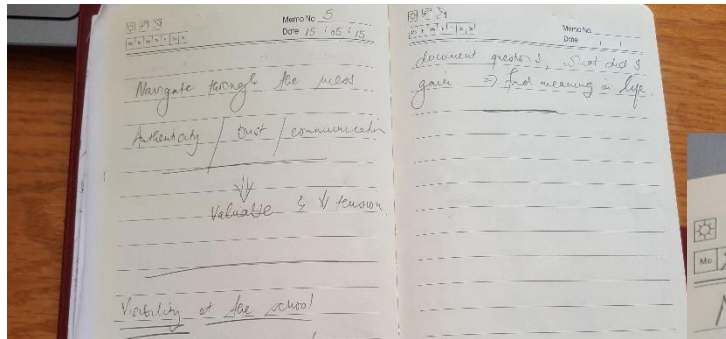 Memo No. 5
Date 15 / 05 / 15
Navigate through the mess
Authenticity / trust / communication
Valuable & ↓ tension
Visibility at the school
Memo No.
Date / /
document questions, what did I
gain ⇒ find meaning in life.
Mo